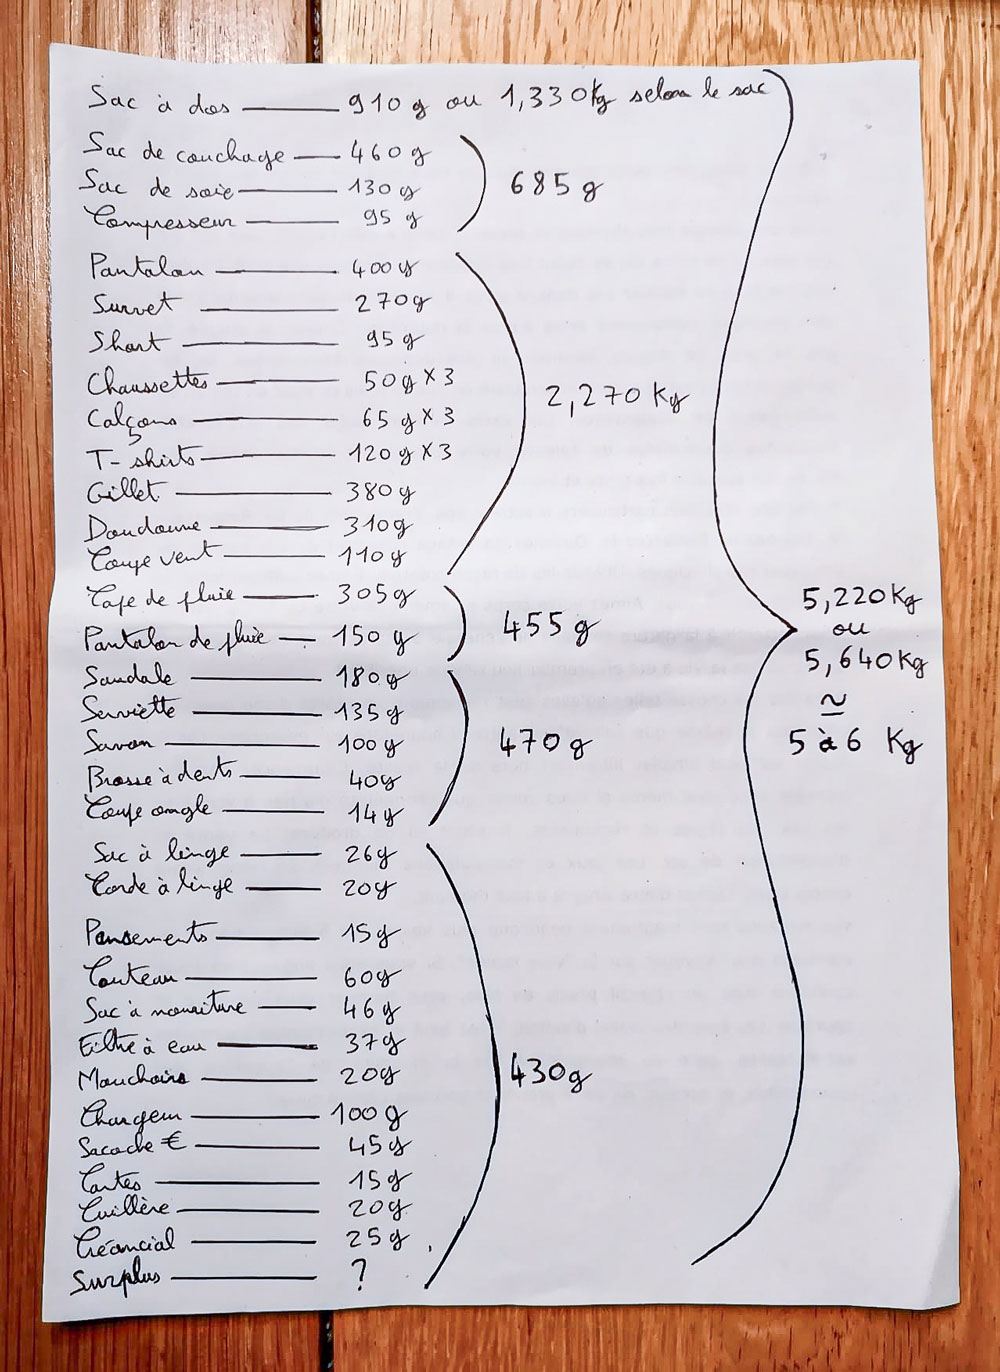 Sac à dos 910 g ou 1,330Kg selon le sac
Sac de couchage 460 g
Sac de soie 130 g
Compresseur 95 g
685 g
Pantalon 400 g
Survet 270 g
Short 95 g
Chaussettes 50 g x 3
Calçons 65 g x 3
T-shirts 120 g x 3
Gillet 380 g
Doudoune 310 g
Coupe vent 110 g
2,270 Kg
Cape de pluie 305 g
Pantalon de pluie 150 g
455 g
Sandale 180 g
Serviette 135 g
Savon 100 g
Brosse à dents 40 g
Coupe ongle 14 g
470 g
Sac à linge 26 g
Corde à linge 20 g
Pansements 15 g
Couteau 60 g
Sac à nourriture 46 g
Filtre à eau 37 g
Mouchoirs 20 g
Chargeur 100 g
Sacoche € 45 g
Cartes 15 g
Cuillère 20 g
Créancial 25 g
Surplus ?
430 g
5,220 Kg
ou
5,640 Kg
≃
5 à 6 Kg